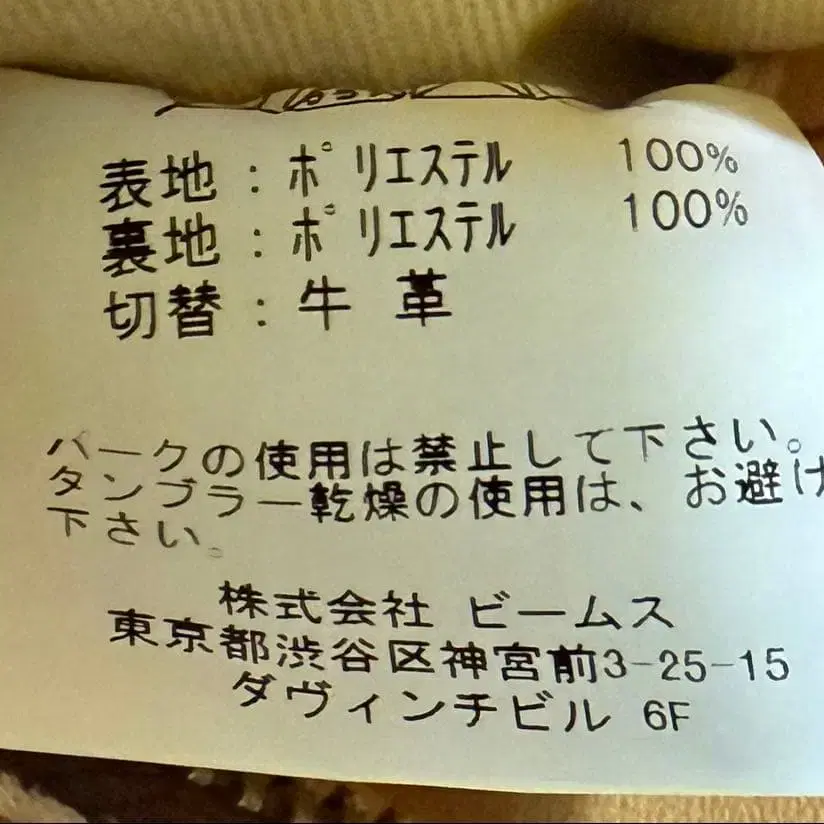 表地：ポリエステル 100%
裏地：ポリエステル 100%
切替：牛 革
パークの使用は禁止して下さい。
タンブラー乾燥の使用は、お避け
下さい。
株式会社 ビームス
東京都渋谷区神宮前3-25-15
ダヴィンチビル 6F